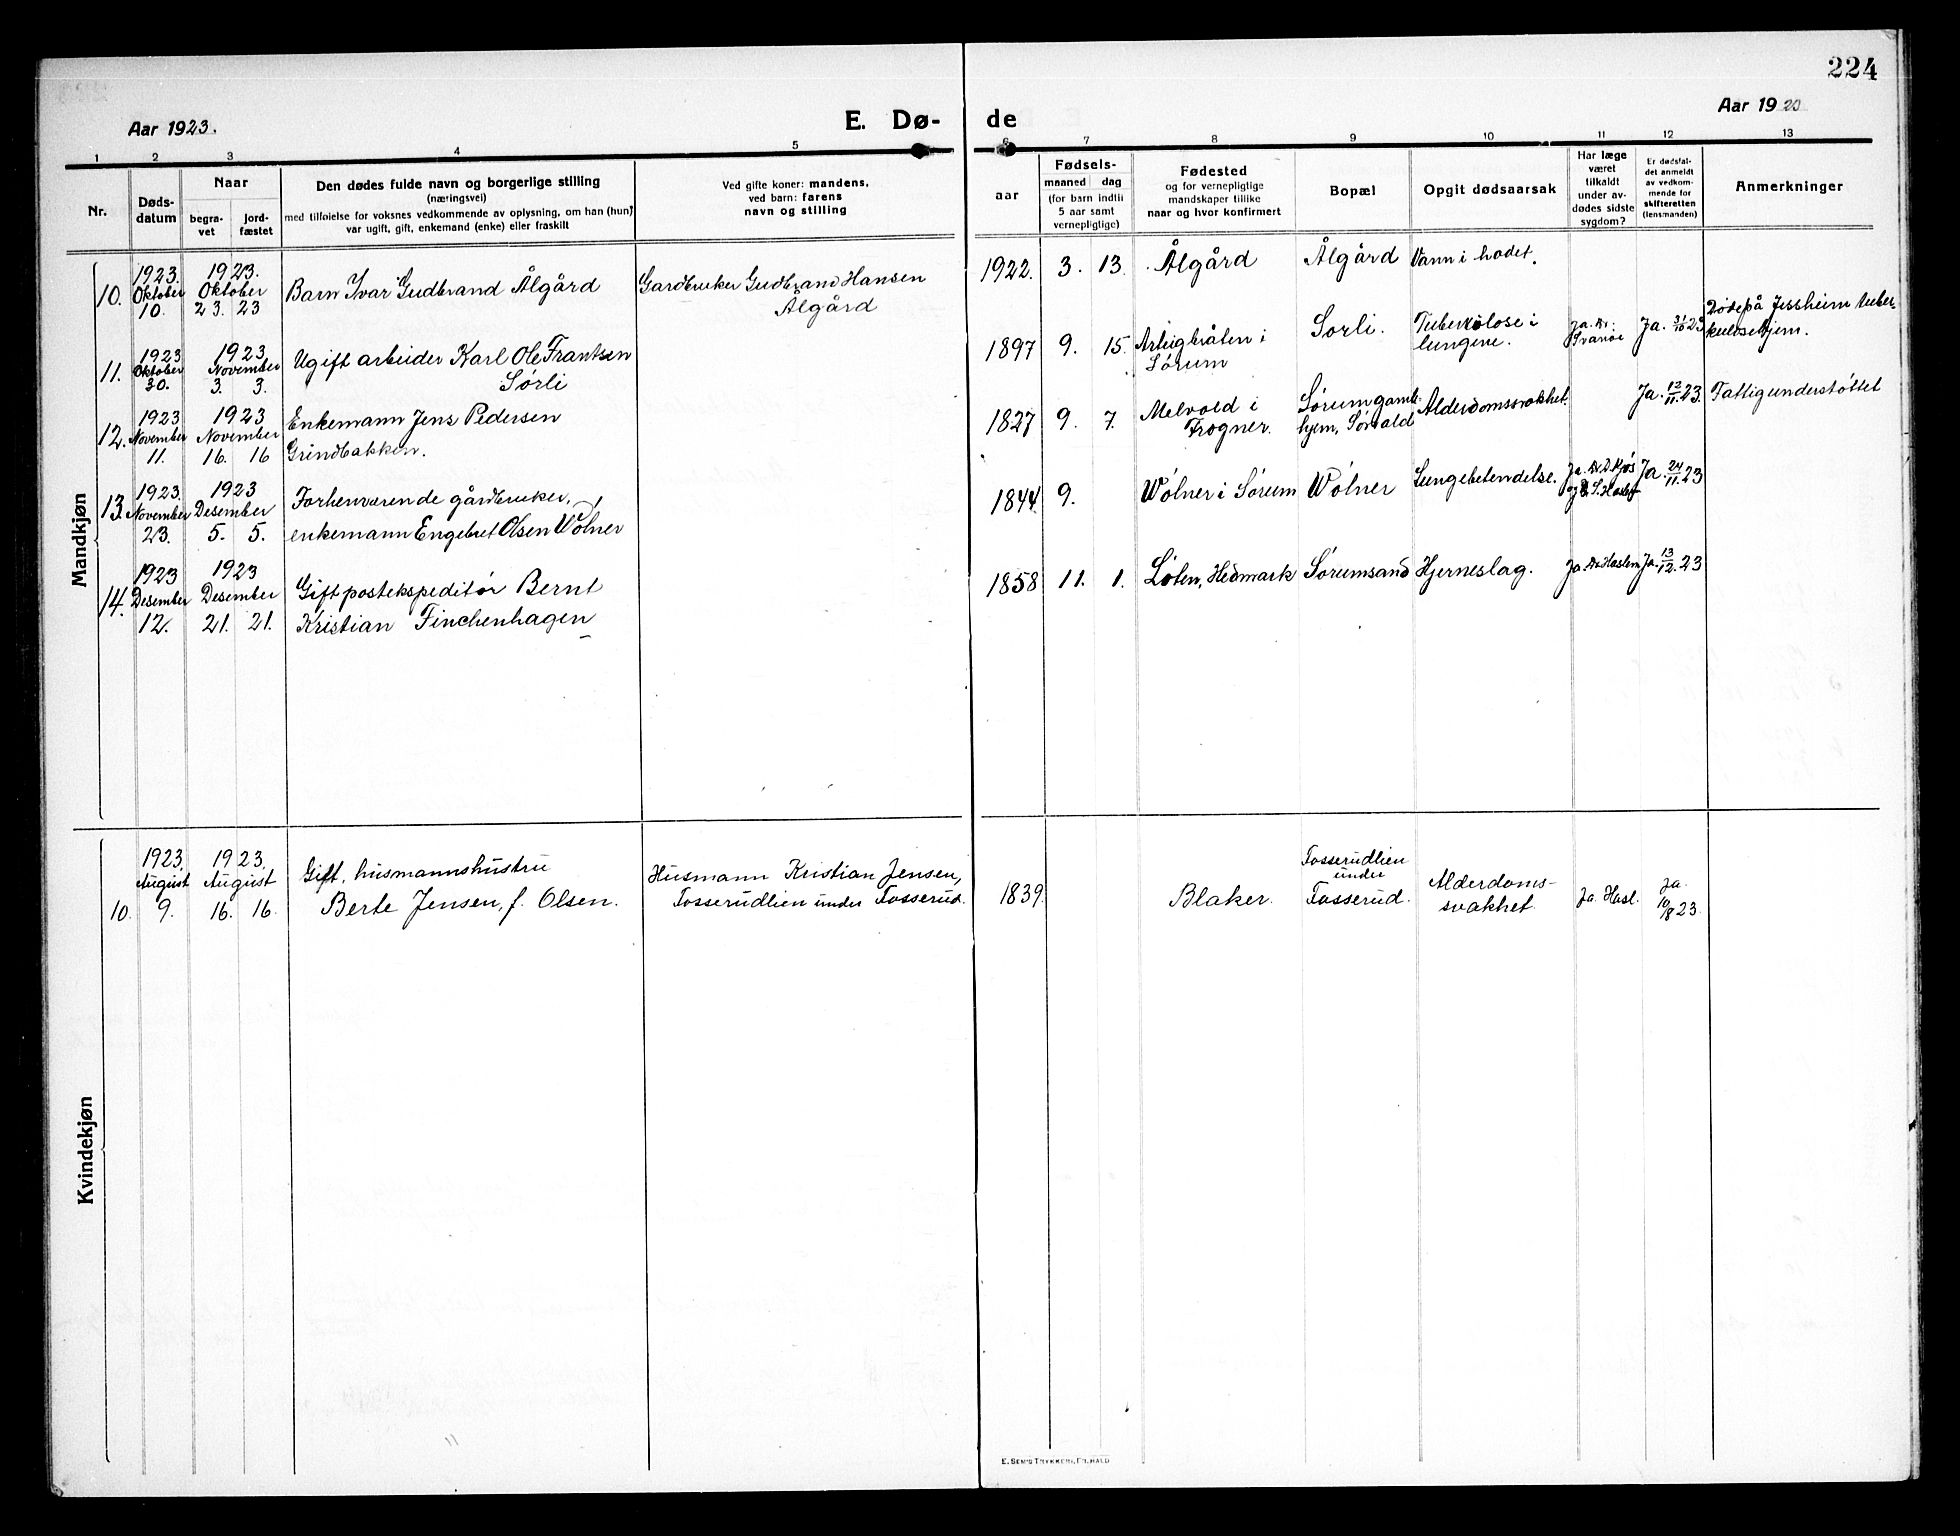 224
Aar 1923.
E. Dø-
de
Aar 19 23
1 2 3 4 5 6 7 8 9 10 11 12 13
Nr.
Døds-
datum
Naar
begra-
vet
jord-
fæstet
Den dødes fulde navn og borgerlige stilling
(næringsvei)
med tilføielse for voksnes vedkommende av oplysning, om han (hun)
var ugift, gift, enkemand (enke) eller fraskilt
Ved gifte koner: mandens,
ved barn: farens
navn og stilling
aar
Fødsels-
maaned dag
(for barn indtil
5 aar samt
vernepligtige)
Fødested
og for vernepligtige
mandskaper tillike
naar og hvor konfirmert
Bopæl
Opgit dødsaarsak
Har læge
været
tilkaldt
under av-
dødes sidste
sygdom?
Er dødsfal-
det anmeldt
av vedkom-
mende for
skifteretten
(lensmanden)
Anmerkninger
Mandkjøn
10.
1923.
Oktober
10.
1923.
Oktober
23. 23
Barn Ivar Gudbrand Ålgård
Gardbruker Gudbrand Hansen
Ålgård
1922. 3. 13.
Ålgård
Ålgård
Vann i hodet.
11.
1923
Oktober
30.
1923
November
3. 3.
Ugift arbeider Karl Ole Frantsen
Sørli
1897 9. 15.
i
Sørum
Sorli.
Tuberkolose i
lungene.
Ja. Dr.
Svanøe
Ja. 31/10 23
Døde på Jessheim tuber-
kulosehjem.
12.
1923
November
11.
1923
November
16. 16
Enkemann Jens Pedersen
Grindbakken.
1827 9. 7.
Melvold i
Frogner.
Sørum gamle-
hjem, Sørvald
Alderdomssvakhet.
Ja. 12/11. 23.
Fattigunderstøttet
13.
1923.
November
23.
1923
Desember
5. 5.
Forhenværende gårdbruker,
enkemann Engebret Olsen Wølner
1844 9.
Wølner i Sørum
Wølner
Lungebetendelse.
Ja.
Ja. 24/11. 23
14.
1923
Desember
12.
1923
Desember
21. 21.
Gift postekspeditør Bernt
Kristian Finchenhagen
1858 11. 1.
Løten, Hedmark
Sørumsand
Hjerneslag.
Ja. Dr Haslem
Ja. 13/12. 23
Kvindekjøn
10.
1923
August
9.
1923.
August
16. 16.
Gift. husmannshustru
Berte Jensen, f. Olsen.
Husmann Kristian Jensen,
Fosserudlien under Fosserud.
1839.
Blaker.
Fosserudlien
under
Fosserud.
Alderdoms-
svakhet.
Ja. Hasl.
Ja.
10/8 23.
E. SEM'S TRYKKERI, FR.HALD